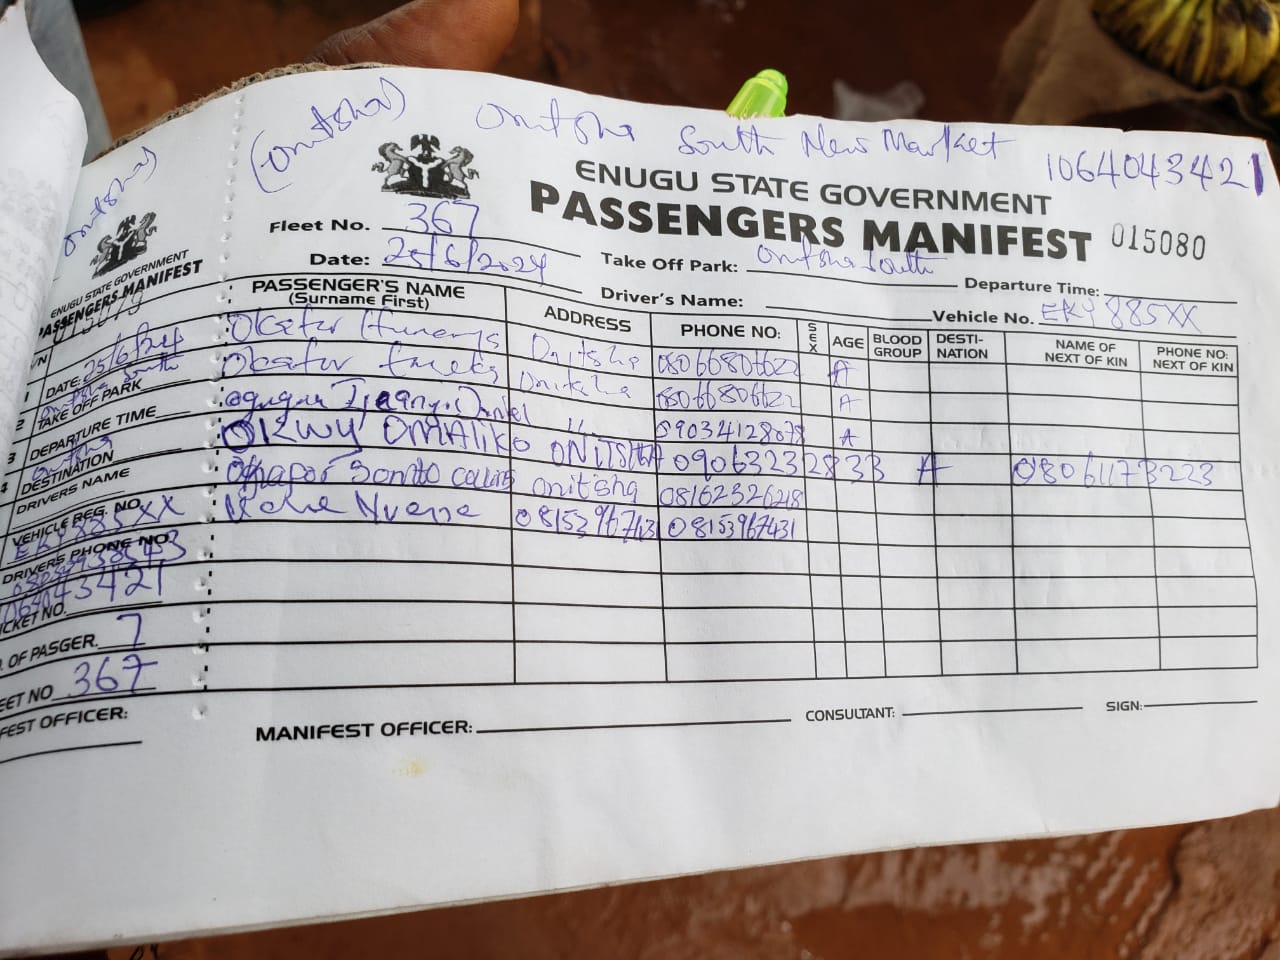 (onitsha) Onitsha South New Market 1064043421
ENUGU STATE GOVERNMENT
PASSENGERS MANIFEST 015080
Fleet No. 367
Date: 25/6/2024 Take Off Park: Onitsha South Departure Time:
Driver's Name: Vehicle No. EKY 885XX
PASSENGER'S NAME (Surname First) ADDRESS PHONE NO: SEX AGE BLOOD GROUP DESTI-NATION NAME OF NEXT OF KIN PHONE NO: NEXT OF KIN
Okafor Onitsha 08066806622 A
Okafor Onitsha 08066806622 A
Daniel 11 09034128078 A
OKWY OMALIKO ONITSHA 09063232833 A 08061173223
Okafor Collins onitsha 08162326218
08153967431 08153967431
MANIFEST OFFICER: CONSULTANT: SIGN:
Onitsha)
ENUGU STATE GOVERNMENT
PASSENGERS MANIFEST
DATE: 25/6/
TAKE OFF PARK South
DEPARTURE TIME
DESTINATION Onitsha
DRIVERS NAME
VEHICLE REG. NO. EKY 885XX
DRIVERS PHONE NO
1064043421
NO. OF PASGER. 7
367